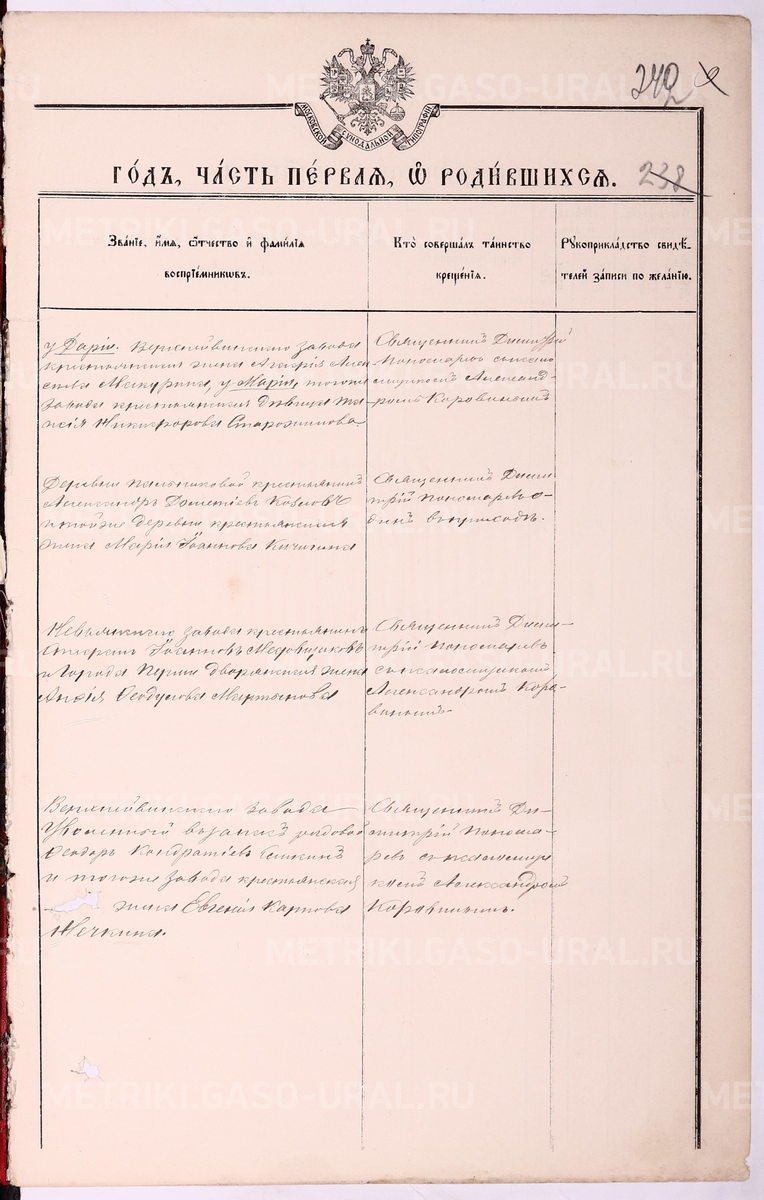 242
МОСКОВСКОЙ СѴНОДАЛЬНОЙ ТИПОГРАФІИ
ГО́ДЪ, ЧА́СТЬ ПЕ́РВАЯ, Ѽ РОДИ́ВШИХСЯ.
238
Зва́нїе, и́мя, ѻ҆́тчество и҆ фами́лїя
воспрїе́мникѡвъ.
Кто̀ соверша́лъ та́инство
креще́нїя.
Рꙋкоприкла́дство свидѣ́-
телей за́писи по жела́нїю.
у Дарiи. Верхнейвинскаго завода
крестьянская жена Агапiя Алек
Макурина, у Марiи, тогоже
завода крестьянская дѣвица
Никифорова Старожилова
Священникъ Димитрiй
Пономаревъ съ псалом
щикомъ Александ-
ромъ Коровинымъ
Деревни Пальниковой крестьянинъ
Александръ Дометiевъ Козловъ
и тойже деревни крестьянская
жена Марiя Iоаннова Кичигина
Священникъ Дими
трiй Пономаревъ о-
динъ въ приходѣ.
Невьянскаго завода крестьянинъ
Iоанновъ Медовщиковъ
и города Перми дворянская жена
Ѳеодулова Мартынова
Священникъ Дими-
трiй Пономаревъ
съ псаломщикомъ
Александромъ Коро-
винымъ
Верхнейвинскаго завода
Уволенный въ запасъ рядовой
Ѳеодоръ Кондратiевъ
и тогоже завода крестьянская
жена Евгенiя Карпова
Мечкина.
Священникъ Ди-
митрiй Понома-
ревъ съ псаломщи
комъ Александромъ
Коровинымъ.
METRIKI.GASO-URAL.RU